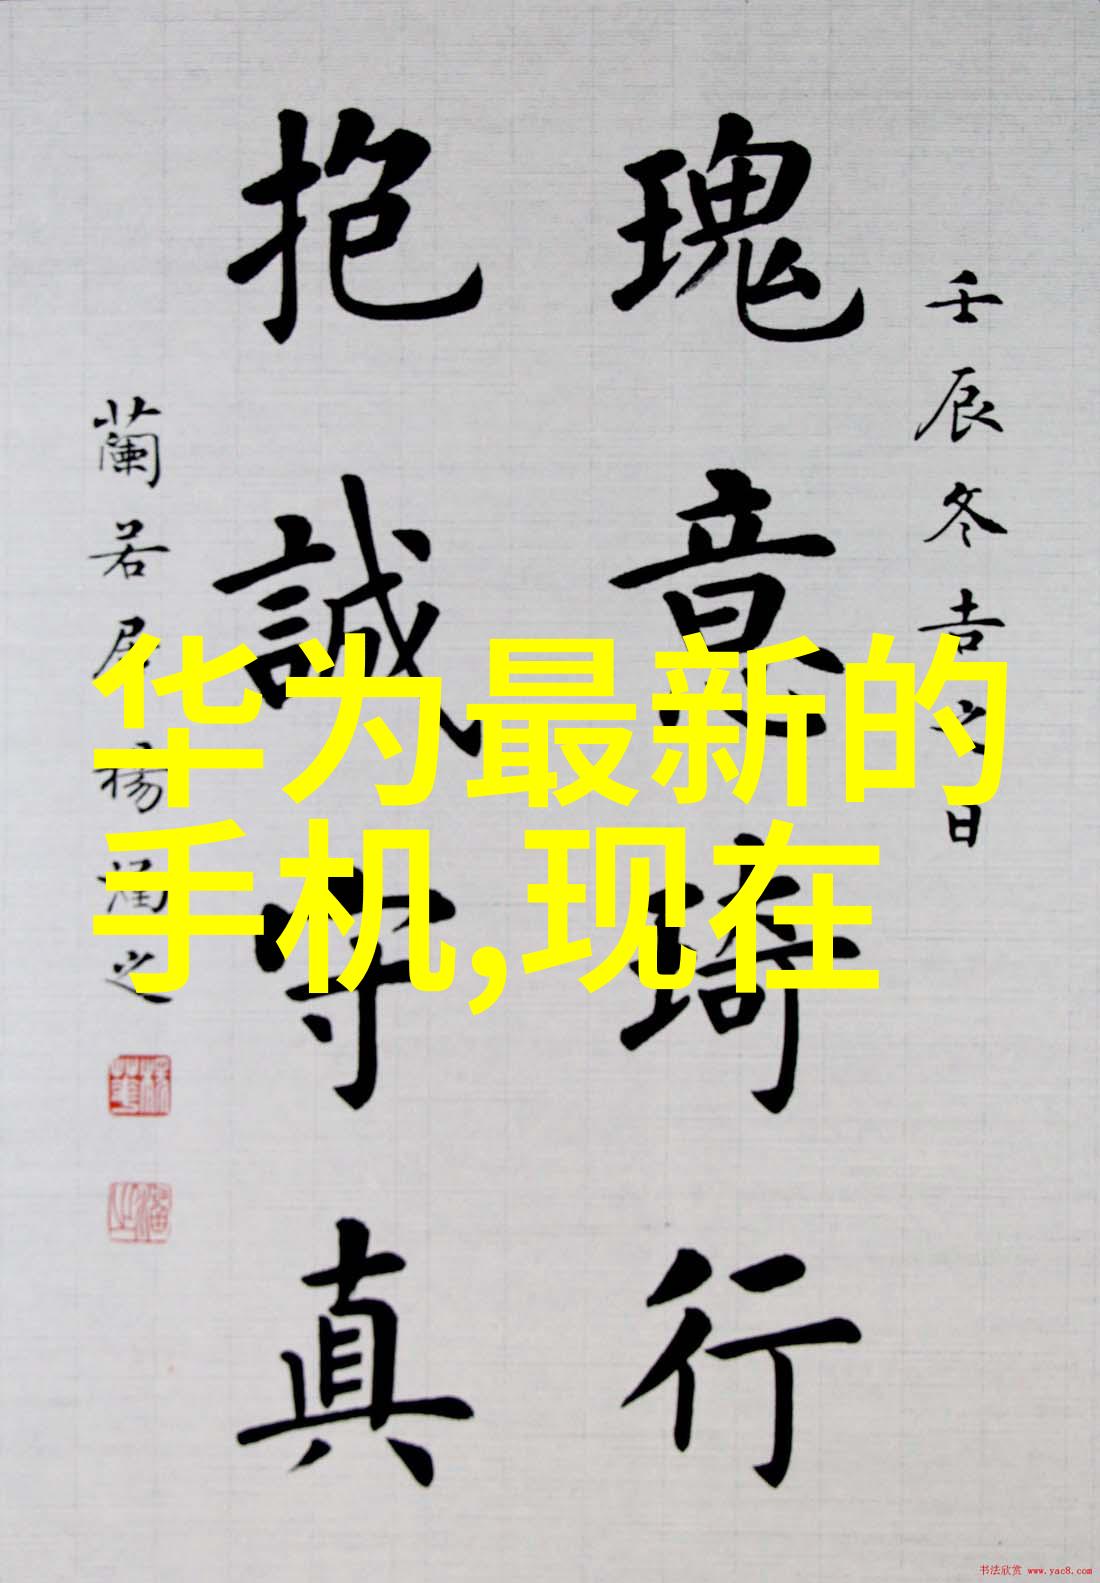 壬辰冬吉之日
瑰意琦行
抱誠守真
蘭若居楊之
华为最新的
手机,现在
书法欣赏 www.yac8.com